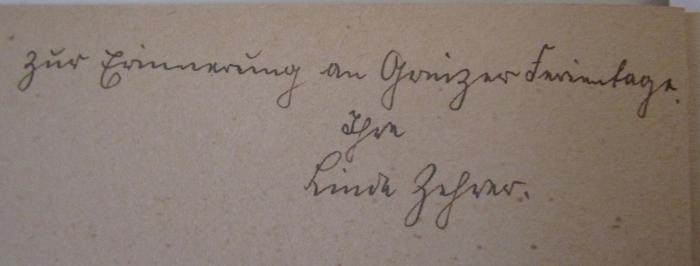 zur Erinnerung an Greizer Ferientage.
Ihre
Linde Zehrer.